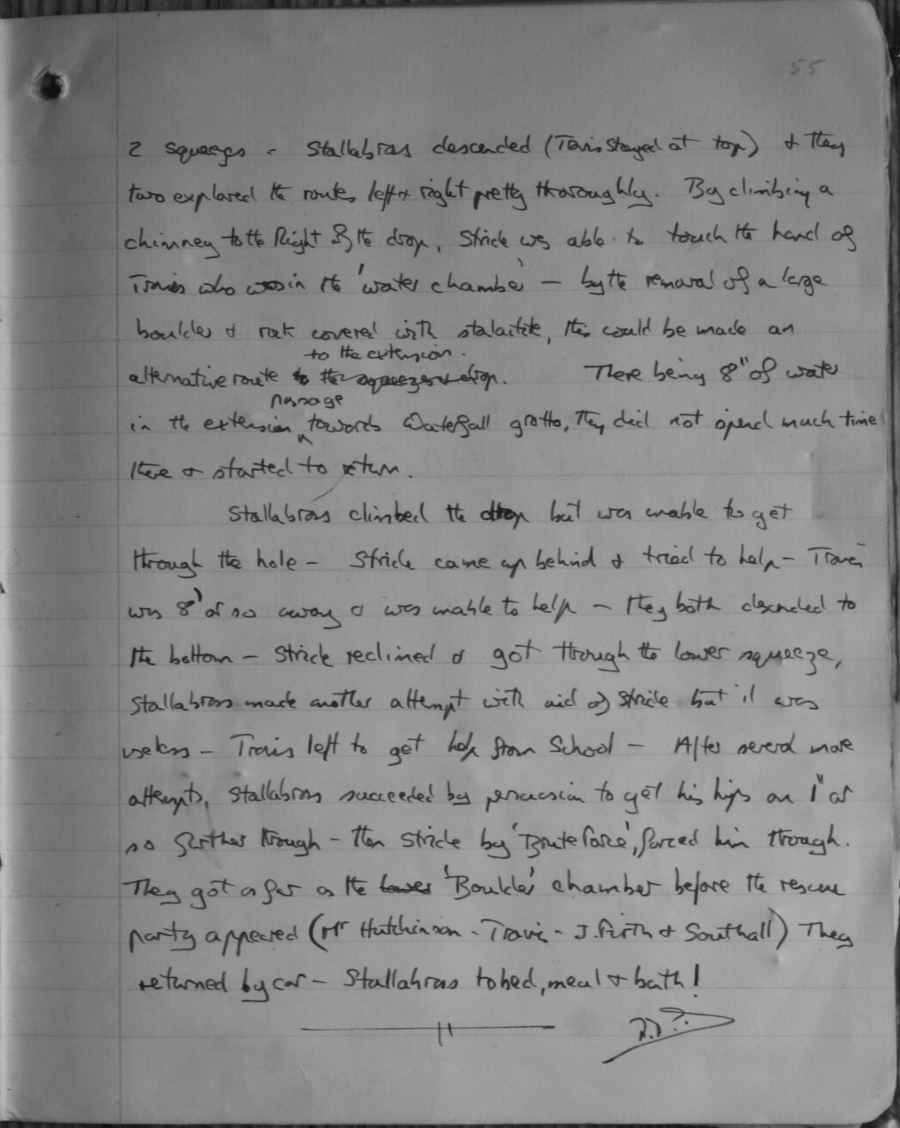 55
2 squeezes - Stallabrass descended (Travis stayed at top) & they
two explored the routes left & right pretty thoroughly. By climbing a
chimney to the Right of the drop, Stride was able to touch the hand of
Travis who was in the 'water chamber' — by the removal of a large
boulder & rock covered with stalactite, this could be made an
to the extension.
alternative route to the squeezes & drop. There being 8" of water
passage
in the extension towards Waterfall grotto, they did not spend much time
there & started to return.
Stallabrass climbed the drop but was unable to get
through the hole - Stride came up behind & tried to help - Travis
was 8' or so away & was unable to help - they both descended to
the bottom - Stride reclined & got through the lower squeeze,
Stallabrass made another attempt with aid of Stride but it was
useless - Travis left to get help from School - After several more
attempts, Stallabrass succeeded by persuasion to get his hips on 1" or
so further through - then Stride by 'Brute force', forced him through.
They got as far as the lower 'Boulder' chamber before the rescue
party appeared (Mr Hutchinson - Travis - J. Firth & Southall) They
returned by car - Stallabrass to bed, meal & bath!